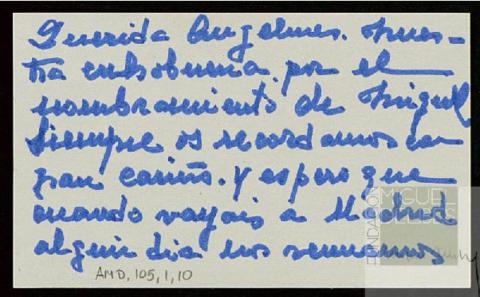 Querida Angelines. Nues-
tra enhobuena por el
nombramiento de Miguel
Siempre os recordamos con
gran cariño. Y espero que
cuando vayais a Madrid
algun dia nos veamos
AMD, 105, 1, 10
FUNDACIÓN
MIGUEL
DELIBES